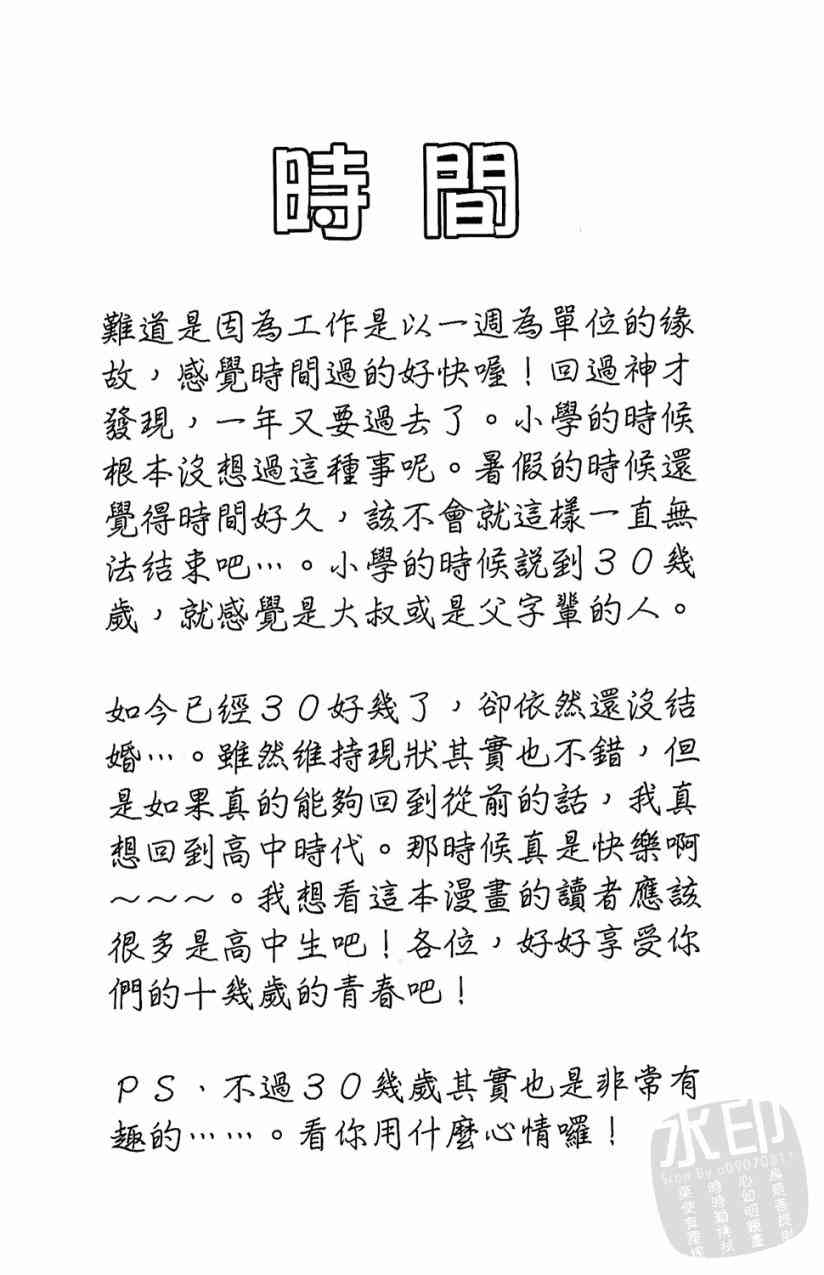 時間
難道是因為工作是以一週為單位的緣
故，感覺時間過的好快喔！回過神才
發現，一年又要過去了。小學的時候
根本沒想過這種事呢。暑假的時候還
覺得時間好久，該不會就這樣一直無
法結束吧…。小學的時候說到３０幾
歲，就感覺是大叔或是父字輩的人。
如今已經３０好幾了，卻依然還沒結
婚…。雖然維持現狀其實也不錯，但
是如果真的能夠回到從前的話，我真
想回到高中時代。那時候真是快樂啊
～～～。我想看這本漫畫的讀者應該
很多是高中生吧！各位，好好享受你
們的十幾歲的青春吧！
ＰＳ、不過３０幾歲其實也是非常有
趣的……。看你用什麼心情囉！
水印